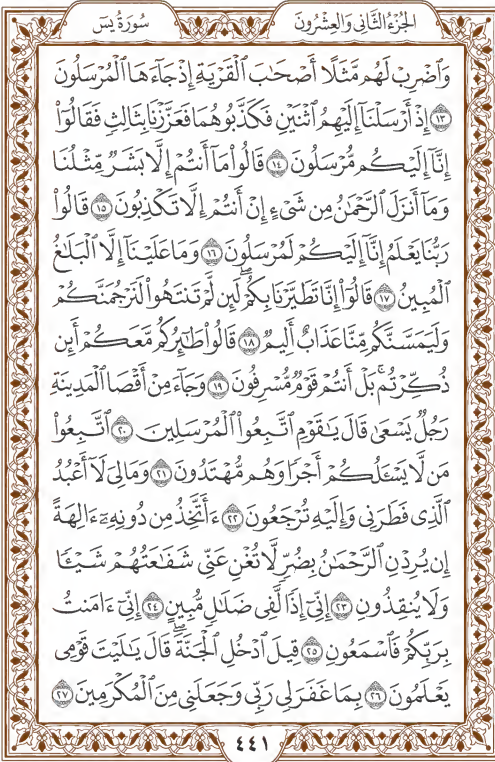 الجُزْءُ الثَّانِي وَالعِشْرُونَ سُورَةُ يسٓ
وَٱضۡرِبۡ لَهُم مَّثَلًا أَصۡحَٰبَ ٱلۡقَرۡيَةِ إِذۡ جَآءَهَا ٱلۡمُرۡسَلُونَ
١٣ إِذۡ أَرۡسَلۡنَآ إِلَيۡهِمُ ٱثۡنَيۡنِ فَكَذَّبُوهُمَا فَعَزَّزۡنَا بِثَالِثٖ فَقَالُوٓاْ
إِنَّآ إِلَيۡكُم مُّرۡسَلُونَ ١٤ قَالُواْ مَآ أَنتُمۡ إِلَّا بَشَرٞ مِّثۡلُنَا
وَمَآ أَنزَلَ ٱلرَّحۡمَٰنُ مِن شَيۡءٍ إِنۡ أَنتُمۡ إِلَّا تَكۡذِبُونَ ١٥ قَالُواْ
رَبُّنَا يَعۡلَمُ إِنَّآ إِلَيۡكُمۡ لَمُرۡسَلُونَ ١٦ وَمَا عَلَيۡنَآ إِلَّا ٱلۡبَلَٰغُ
ٱلۡمُبِينُ ١٧ قَالُوٓاْ إِنَّا تَطَيَّرۡنَا بِكُمۡۖ لَئِن لَّمۡ تَنتَهُواْ لَنَرۡجُمَنَّكُمۡ
وَلَيَمَسَّنَّكُم مِّنَّا عَذَابٌ أَلِيمٞ ١٨ قَالُواْ طَٰٓئِرُكُم مَّعَكُمۡ أَئِن
ذُكِّرۡتُمۚ بَلۡ أَنتُمۡ قَوۡمٞ مُّسۡرِفُونَ ١٩ وَجَآءَ مِنۡ أَقۡصَا ٱلۡمَدِينَةِ
رَجُلٞ يَسۡعَىٰ قَالَ يَٰقَوۡمِ ٱتَّبِعُواْ ٱلۡمُرۡسَلِينَ ٢٠ ٱتَّبِعُواْ
مَن لَّا يَسۡـَٔلُكُمۡ أَجۡرٗا وَهُم مُّهۡتَدُونَ ٢١ وَمَالِيَ لَآ أَعۡبُدُ
ٱلَّذِي فَطَرَنِي وَإِلَيۡهِ تُرۡجَعُونَ ٢٢ ءَأَتَّخِذُ مِن دُونِهِۦٓ ءَالِهَةً
إِن يُرِدۡنِ ٱلرَّحۡمَٰنُ بِضُرّٖ لَّا تُغۡنِ عَنِّي شَفَٰعَتُهُمۡ شَيۡـٔٗا
وَلَا يُنقِذُونِ ٢٣ إِنِّيٓ إِذٗا لَّفِي ضَلَٰلٖ مُّبِينٍ ٢٤ إِنِّيٓ ءَامَنتُ
بِرَبِّكُمۡ فَٱسۡمَعُونِ ٢٥ قِيلَ ٱدۡخُلِ ٱلۡجَنَّةَۖ قَالَ يَٰلَيۡتَ قَوۡمِي
يَعۡلَمُونَ ٢٦ بِمَا غَفَرَ لِي رَبِّي وَجَعَلَنِي مِنَ ٱلۡمُكۡرَمِينَ ٢٧
٤٤١